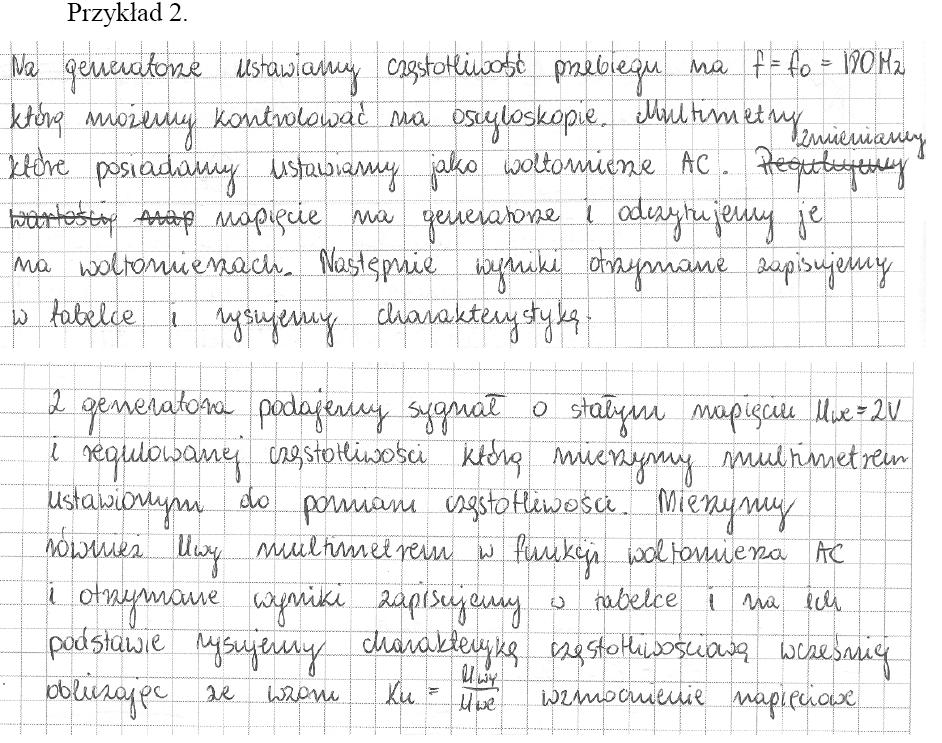 Przykład 2.
Na generatorze ustawiamy częstotliwość przebiegu na f = f₀ = 190Hz
którą możemy kontrolować na oscyloskopie. Multimetry
które posiadamy ustawiamy jako woltomierze AC. Regulujemy zmieniamy
wartością nap napięcie na generatorze i odczytujemy je
na woltomierzach. Następnie wyniki otrzymane zapisujemy
w tabelce i rysujemy charakterystykę.
Z generatora podajemy sygnał o stałym napięciu Uwe = 2V
i regulowanej częstotliwości którą mierzymy multimetrem
ustawionym do pomiaru częstotliwości. Mierzymy
również Uwy multimetrem w funkcji woltomierza AC
i otrzymane wyniki zapisujemy w tabelce i na ich
podstawie rysujemy charakterykę częstotliwościową wcześniej
obliczając ze wzoru Ku = Uwy/Uwe wzmocnienie napięciowe